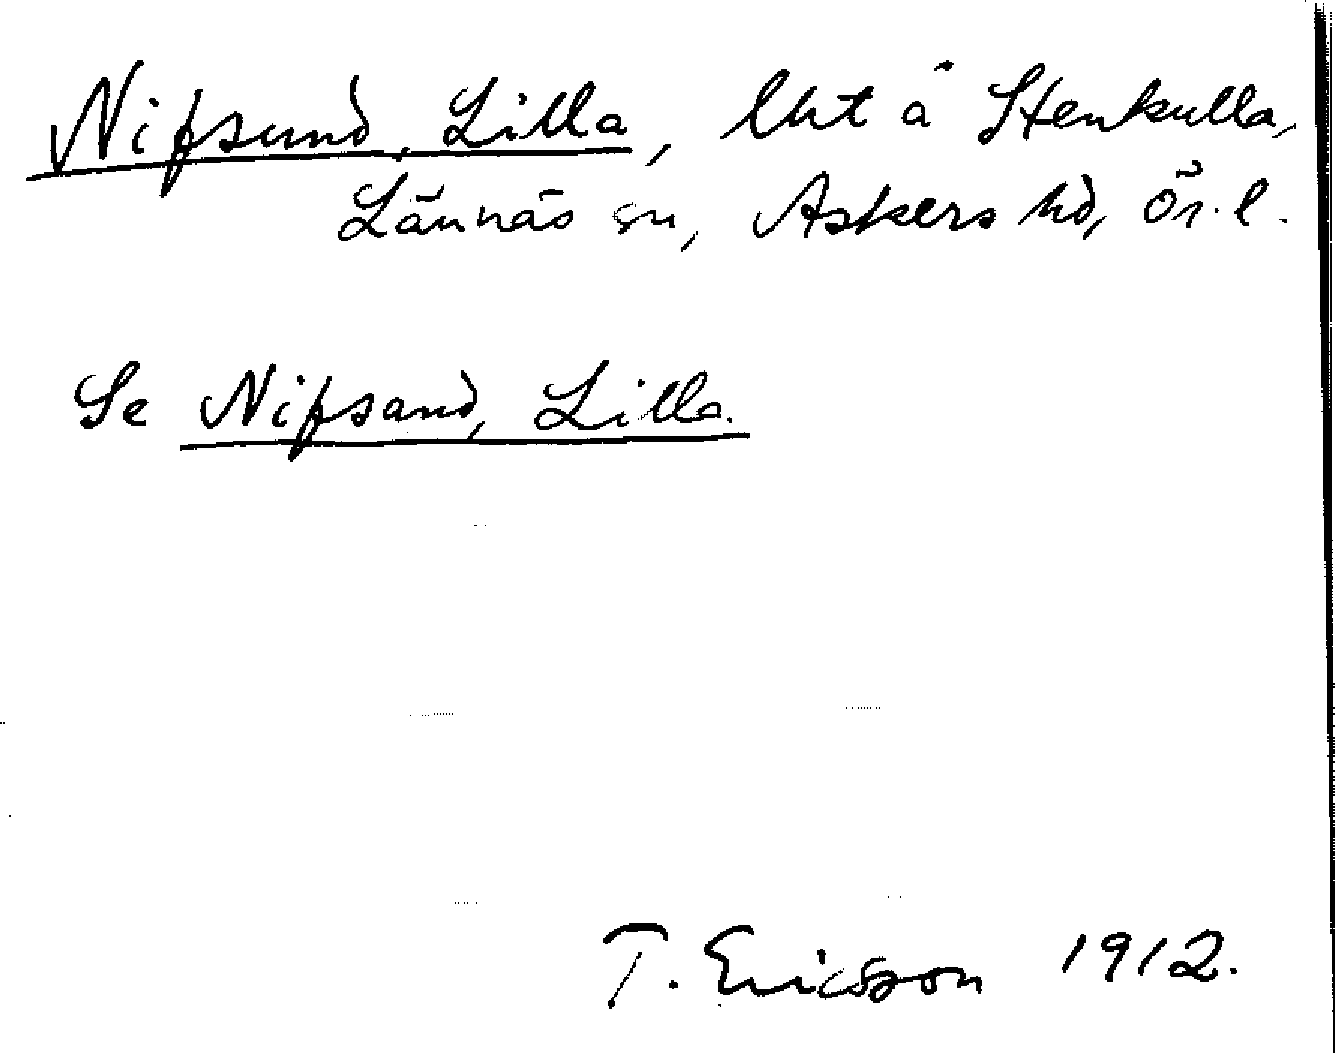 Nifsund, Lilla, lht å Stenkulla,
Lännäs sn, Askers hd, Ör. l.
Se Nifsand, Lilla.
T. Ericsson 1912.